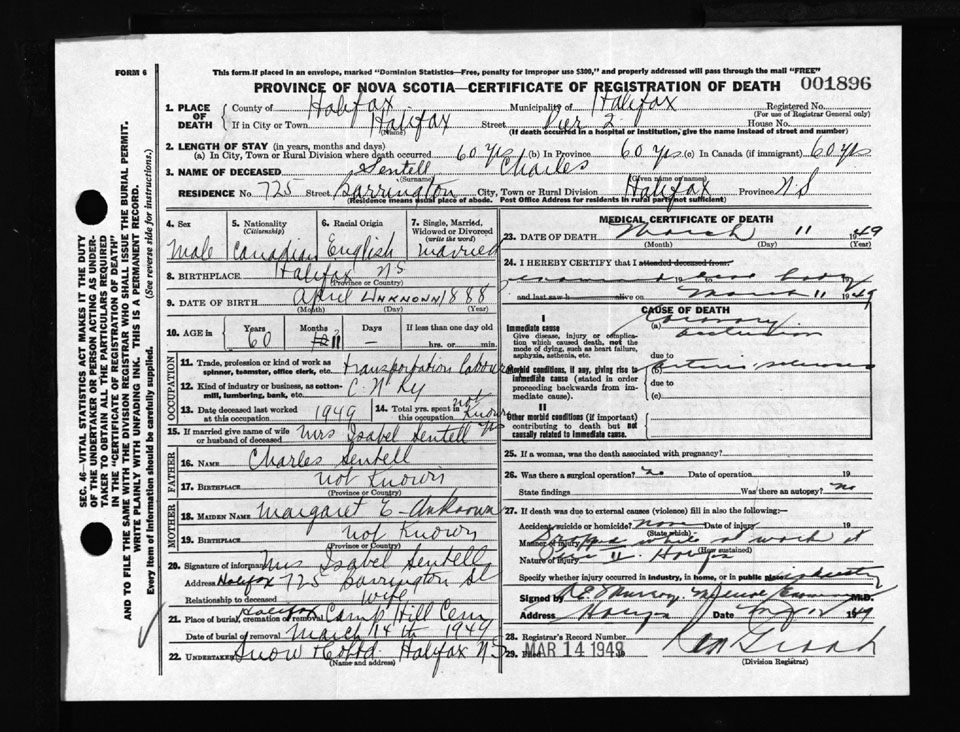 FORM 6
This form if placed in an envelope, marked "Dominion Statistics—Free, penalty for improper use $300," and properly addressed will pass through the mail "FREE"
PROVINCE OF NOVA SCOTIA—CERTIFICATE OF REGISTRATION OF DEATH 001896
1. PLACE OF DEATH
County of Halifax Municipality of Halifax Registered No.
(For use of Registrar General only)
If in City or Town Halifax Street Pier 2 House No.
(Name) (If death occurred in a hospital or institution, give the name instead of street and number)
2. LENGTH OF STAY (in years, months and days)
(a) In City, Town or Rural Division where death occurred 60 yrs (b) In Province 60 yrs (c) In Canada (if immigrant) 60 yrs
3. NAME OF DECEASED Sentell Charles
(Surname) (Given name or names)
RESIDENCE No. 725 Street Barrington City, Town or Rural Division Halifax Province N.S
(Residence means usual place of abode. Post Office Address for residents in rural parts not sufficient)
4. Sex Male
5. Nationality (Citizenship) Canadian
6. Racial Origin English
7. Single, Married, Widowed or Divorced (write the word) Married
8. BIRTHPLACE Halifax NS
(Province or Country)
9. DATE OF BIRTH April UNKNOWN 1888
(Month) (Day) (Year)
10. AGE in Years 60 Months 11 Days – If less than one day old
hrs. or min.
OCCUPATION
11. Trade, profession or kind of work as spinner, teamster, office clerk, etc. Transportation labourer
12. Kind of industry or business, as cotton-mill, lumbering, bank, etc. C.N. Ry
13. Date deceased last worked at this occupation 1949
14. Total yrs. spent in this occupation not Known
15. If married give name of wife or husband of deceased Mrs Isabel Sentell
FATHER
16. NAME Charles Sentell
17. BIRTHPLACE not Known
(Province or Country)
MOTHER
18. MAIDEN NAME Margaret E - Unknown
19. BIRTHPLACE not Known
(Province or Country)
20. Signature of informant Mrs Isabel Sentell
Address Halifax 725 Barrington St
Relationship to deceased wife
21. Place of burial, cremation or removal Halifax Camp Hill Cem
Date of burial or removal March 14th 1949
22. Undertaker Snow & Co Ltd. Halifax NS
(Name and address)
MEDICAL CERTIFICATE OF DEATH
23. DATE OF DEATH March 11 1949
(Month) (Day) (Year)
24. I HEREBY CERTIFY that I attended deceased from:
and last saw h alive on March 11 1949
CAUSE OF DEATH
I
Immediate cause
Give disease, injury or complication which caused death, not the mode of dying, such as heart failure, asphyxia, asthenia, etc.
(a) Coronary occlusion
due to
Morbid conditions, if any, giving rise to immediate cause (stated in order proceeding backwards from immediate cause).
due to
(c)
II
Other morbid conditions (if important) contributing to death but not causally related to immediate cause.
25. If a woman, was the death associated with pregnancy?
26. Was there a surgical operation? no Date of operation 19
State findings Was there an autopsy? no
27. If death was due to external causes (violence) fill in also the following:—
Accident, suicide or homicide? none Date of injury 19
(State which)
Manner of injury Dropped while at work at
(How sustained)
Nature of injury
Specify whether injury occurred in industry, in home, or in public place industry
Signed by Medical Examiner M.D.
Address 12 1949
28. Registrar's Record Number
29. Filed MAR 14 1949 19
(Division Registrar)
SEC. 46—VITAL STATISTICS ACT MAKES IT THE DUTY
OF THE UNDERTAKER OR PERSON ACTING AS UNDER-
TAKER TO OBTAIN ALL THE PARTICULARS REQUIRED
IN THE "CERTIFICATE OF REGISTRATION OF DEATH"
AND TO FILE THE SAME WITH THE DIVISION REGISTRAR WHO SHALL ISSUE THE BURIAL PERMIT.
WRITE PLAINLY WITH UNFADING INK. THIS IS A PERMANENT RECORD.
Every item of Information should be carefully supplied. (See reverse side for instructions.)